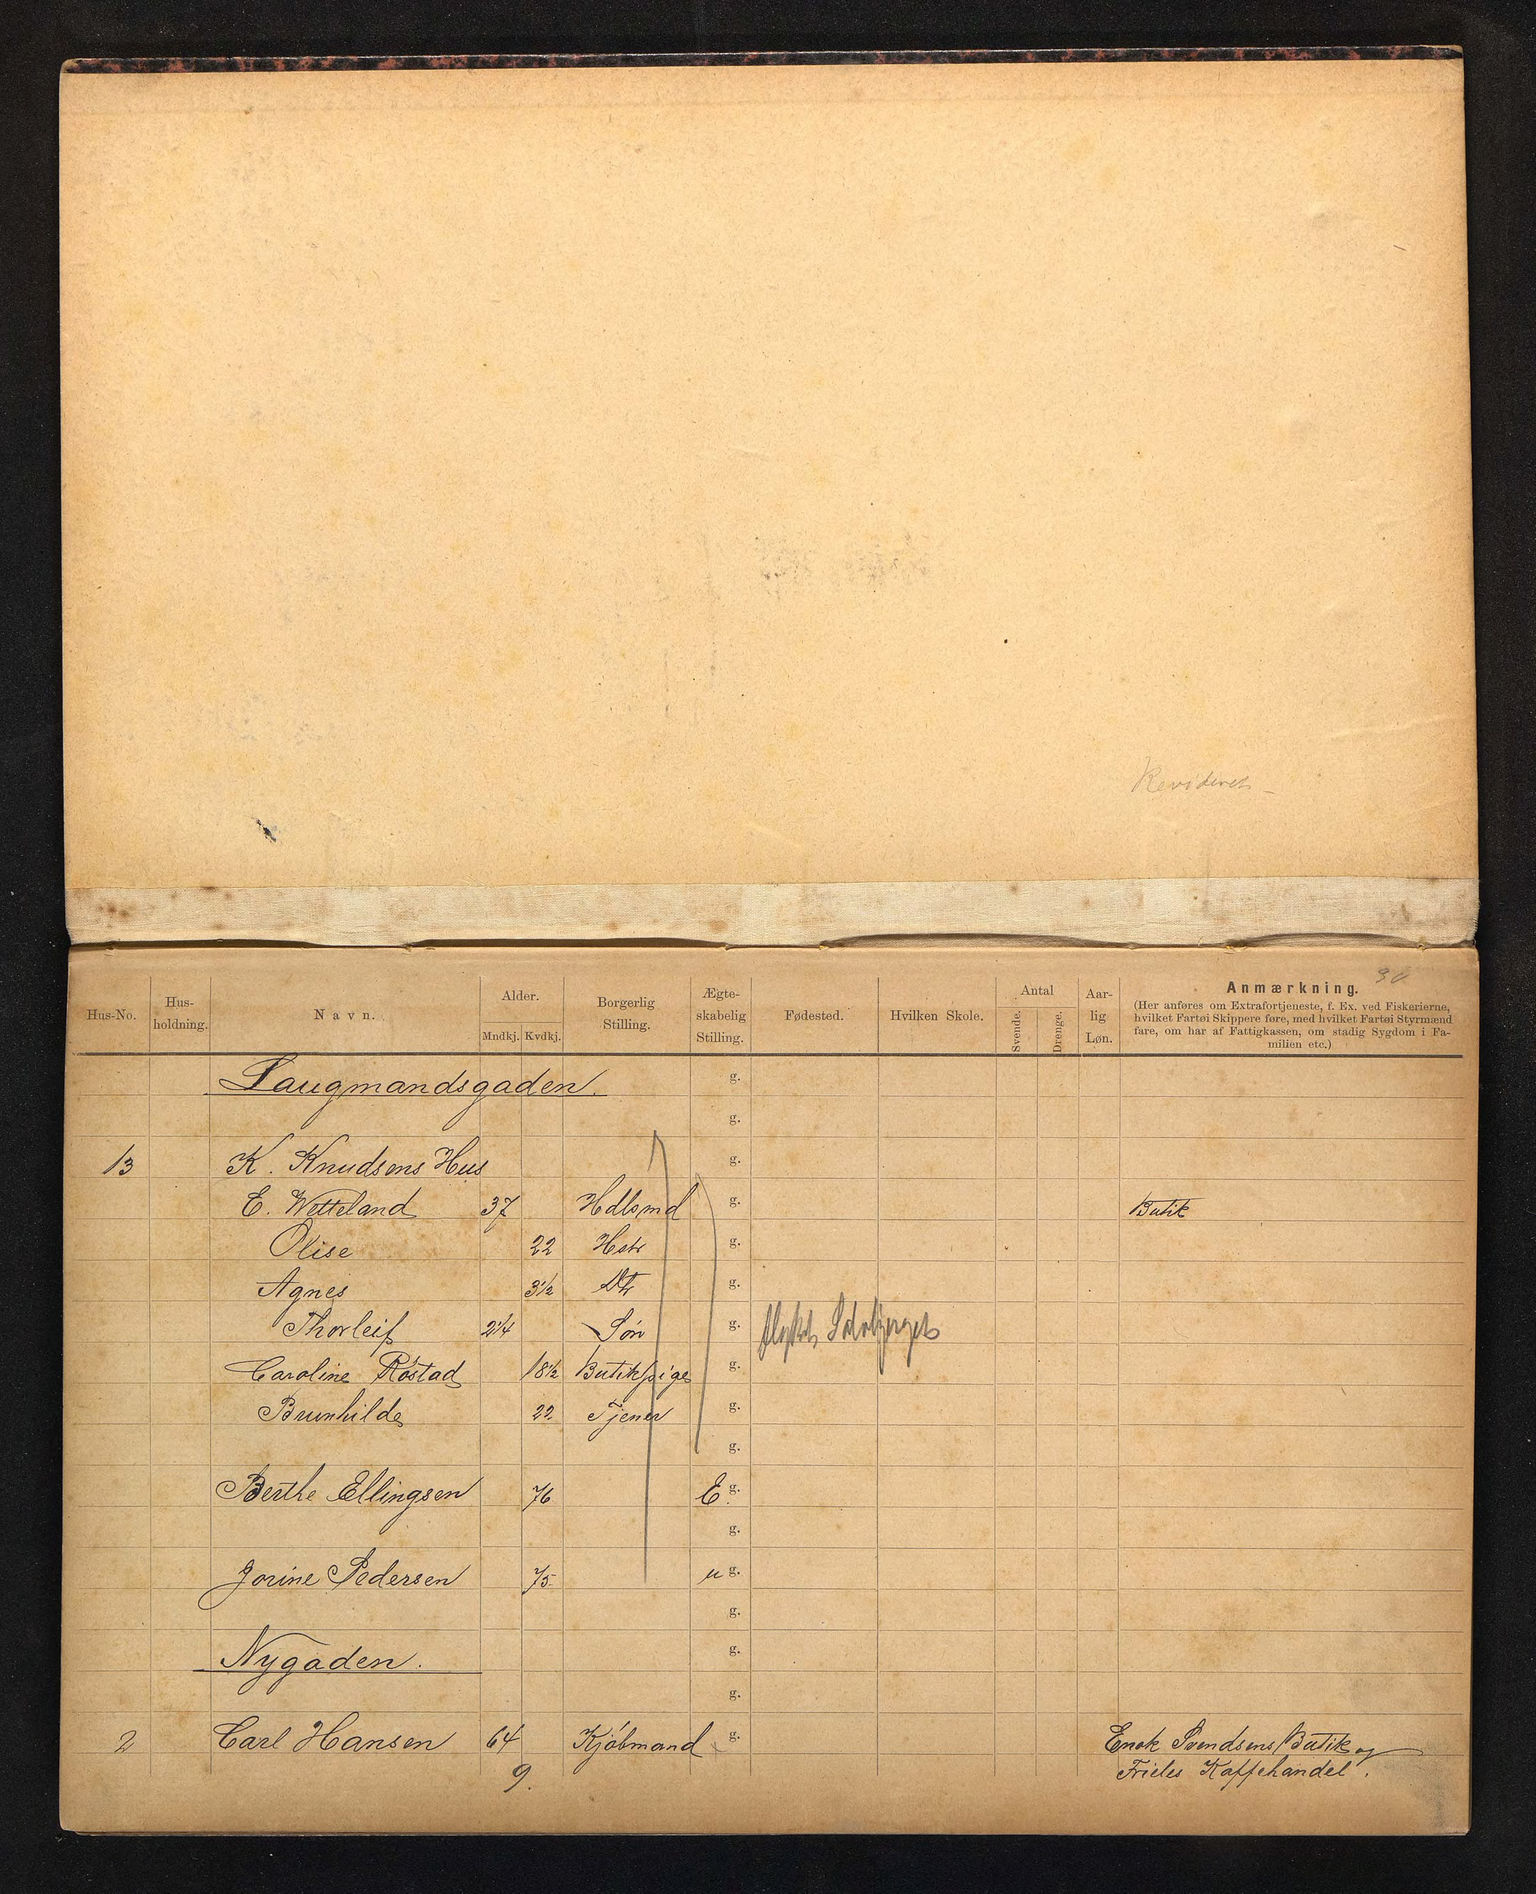 Revideret
30
Hus-No.
Hus-
holdning.
Navn.
Alder.
Mndkj. Kvdkj.
Borgerlig
Stilling.
Ægte-
skabelig
Stilling.
Fødested.
Hvilken Skole.
Antal
Svende.
Drenge.
Aar-
lig
Løn.
Anmærkning.
(Her anføres om Extrafortjeneste, f. Ex. ved Fiskerierne,
hvilket Fartøi Skippere føre, med hvilket Fartøi Styrmænd
fare, om har af Fattigkassen, om stadig Sygdom i Fa-
milien etc.)
Laugmandsgaden. g.
g.
13 K. Knudsens Hus g.
E. Wetteland 37 Hdlsmd g. Butik
Olise 22 Hstr g.
Agnes 3 1/2 Dtr g.
Thorleif 2 1/4 Søn g. flyttet
Caroline Röstad 18 1/2 Butikpige g.
Brunhilde 22 Tjener g.
g.
Berthe Ellingsen 76 E. g.
g.
Jorine Pedersen 75 u g.
g.
Nygaden. g.
g.
2 Carl Hansen 64 Kjöbmand g. Enok Svendsens Butik og
9. Frieles Kaffehandel.